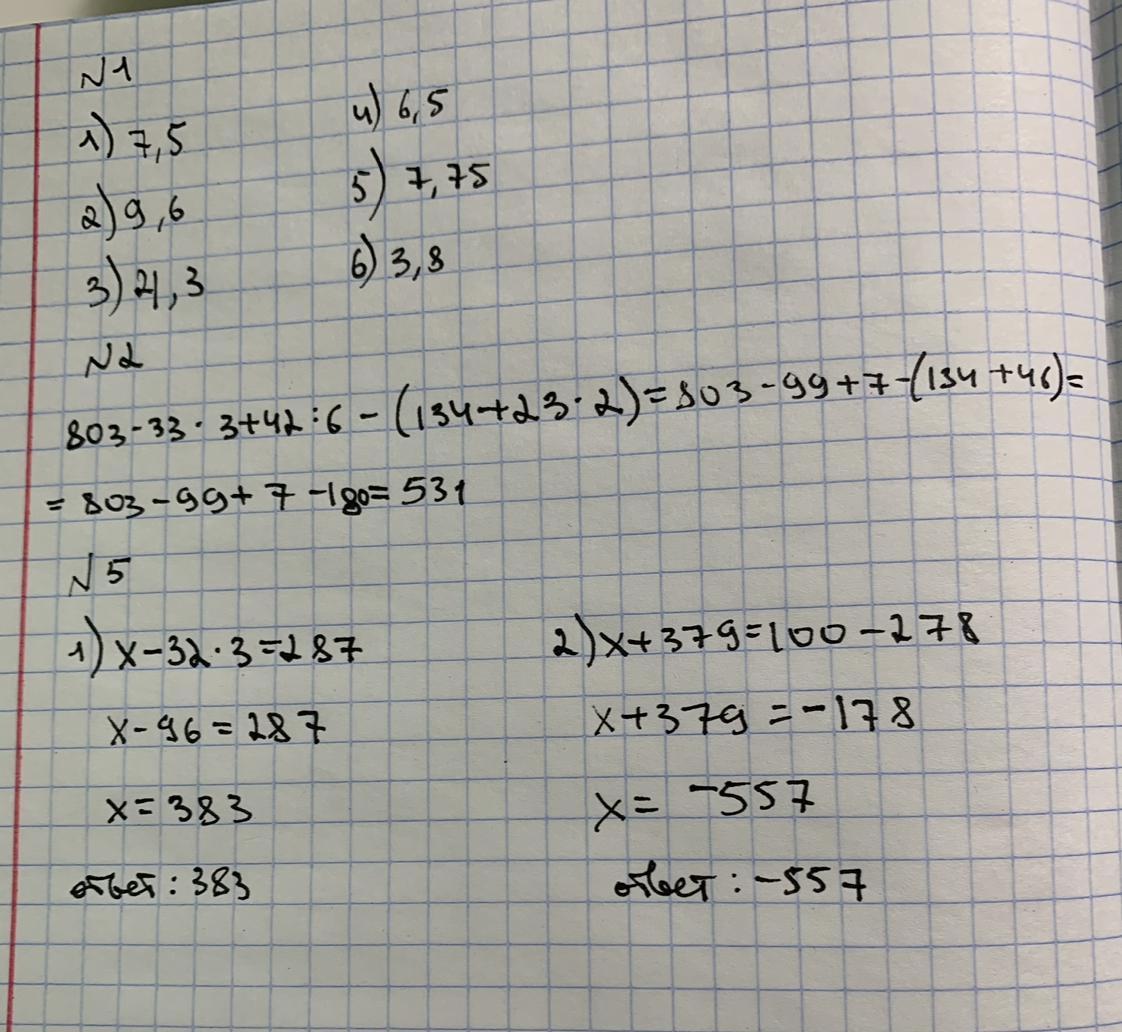 N1
1) 7,5
2) 9,6
3) 21,3
4) 6,5
5) 7,75
6) 3,8
N2
803-33·3+42:6-(134+23·2)=803-99+7-(134+46)=
=803-99+7-180=531
N5
1) x-32·3=287
x-96=287
x=383
ответ: 383
2) x+379=100-278
x+379=-178
x=-557
ответ: -557